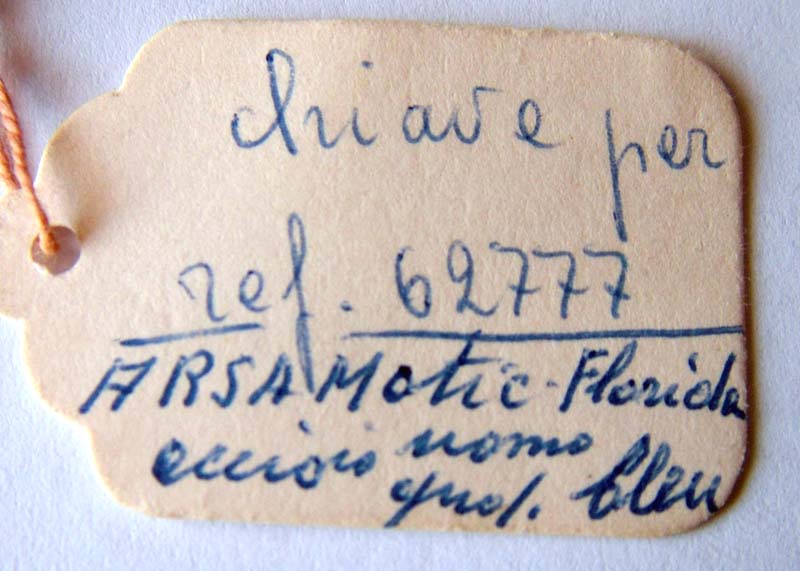 chiave per
ref. 62777
ARSA Matic-Florida
acciaio uomo
quad. bleu